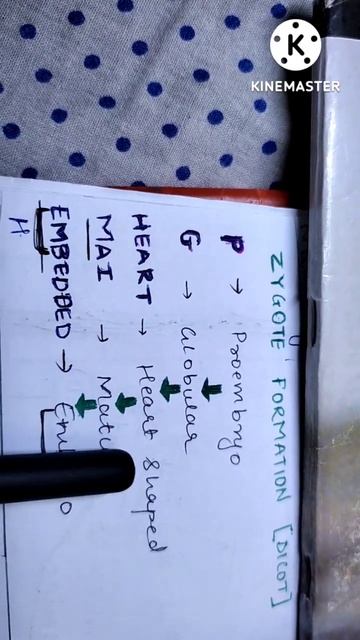 KINEMASTER
ZYGOTE FORMATION [DICOT]
P → Proembryo
G → Globular
HEART → Heart Shaped
MAI →
EMBEDDED →